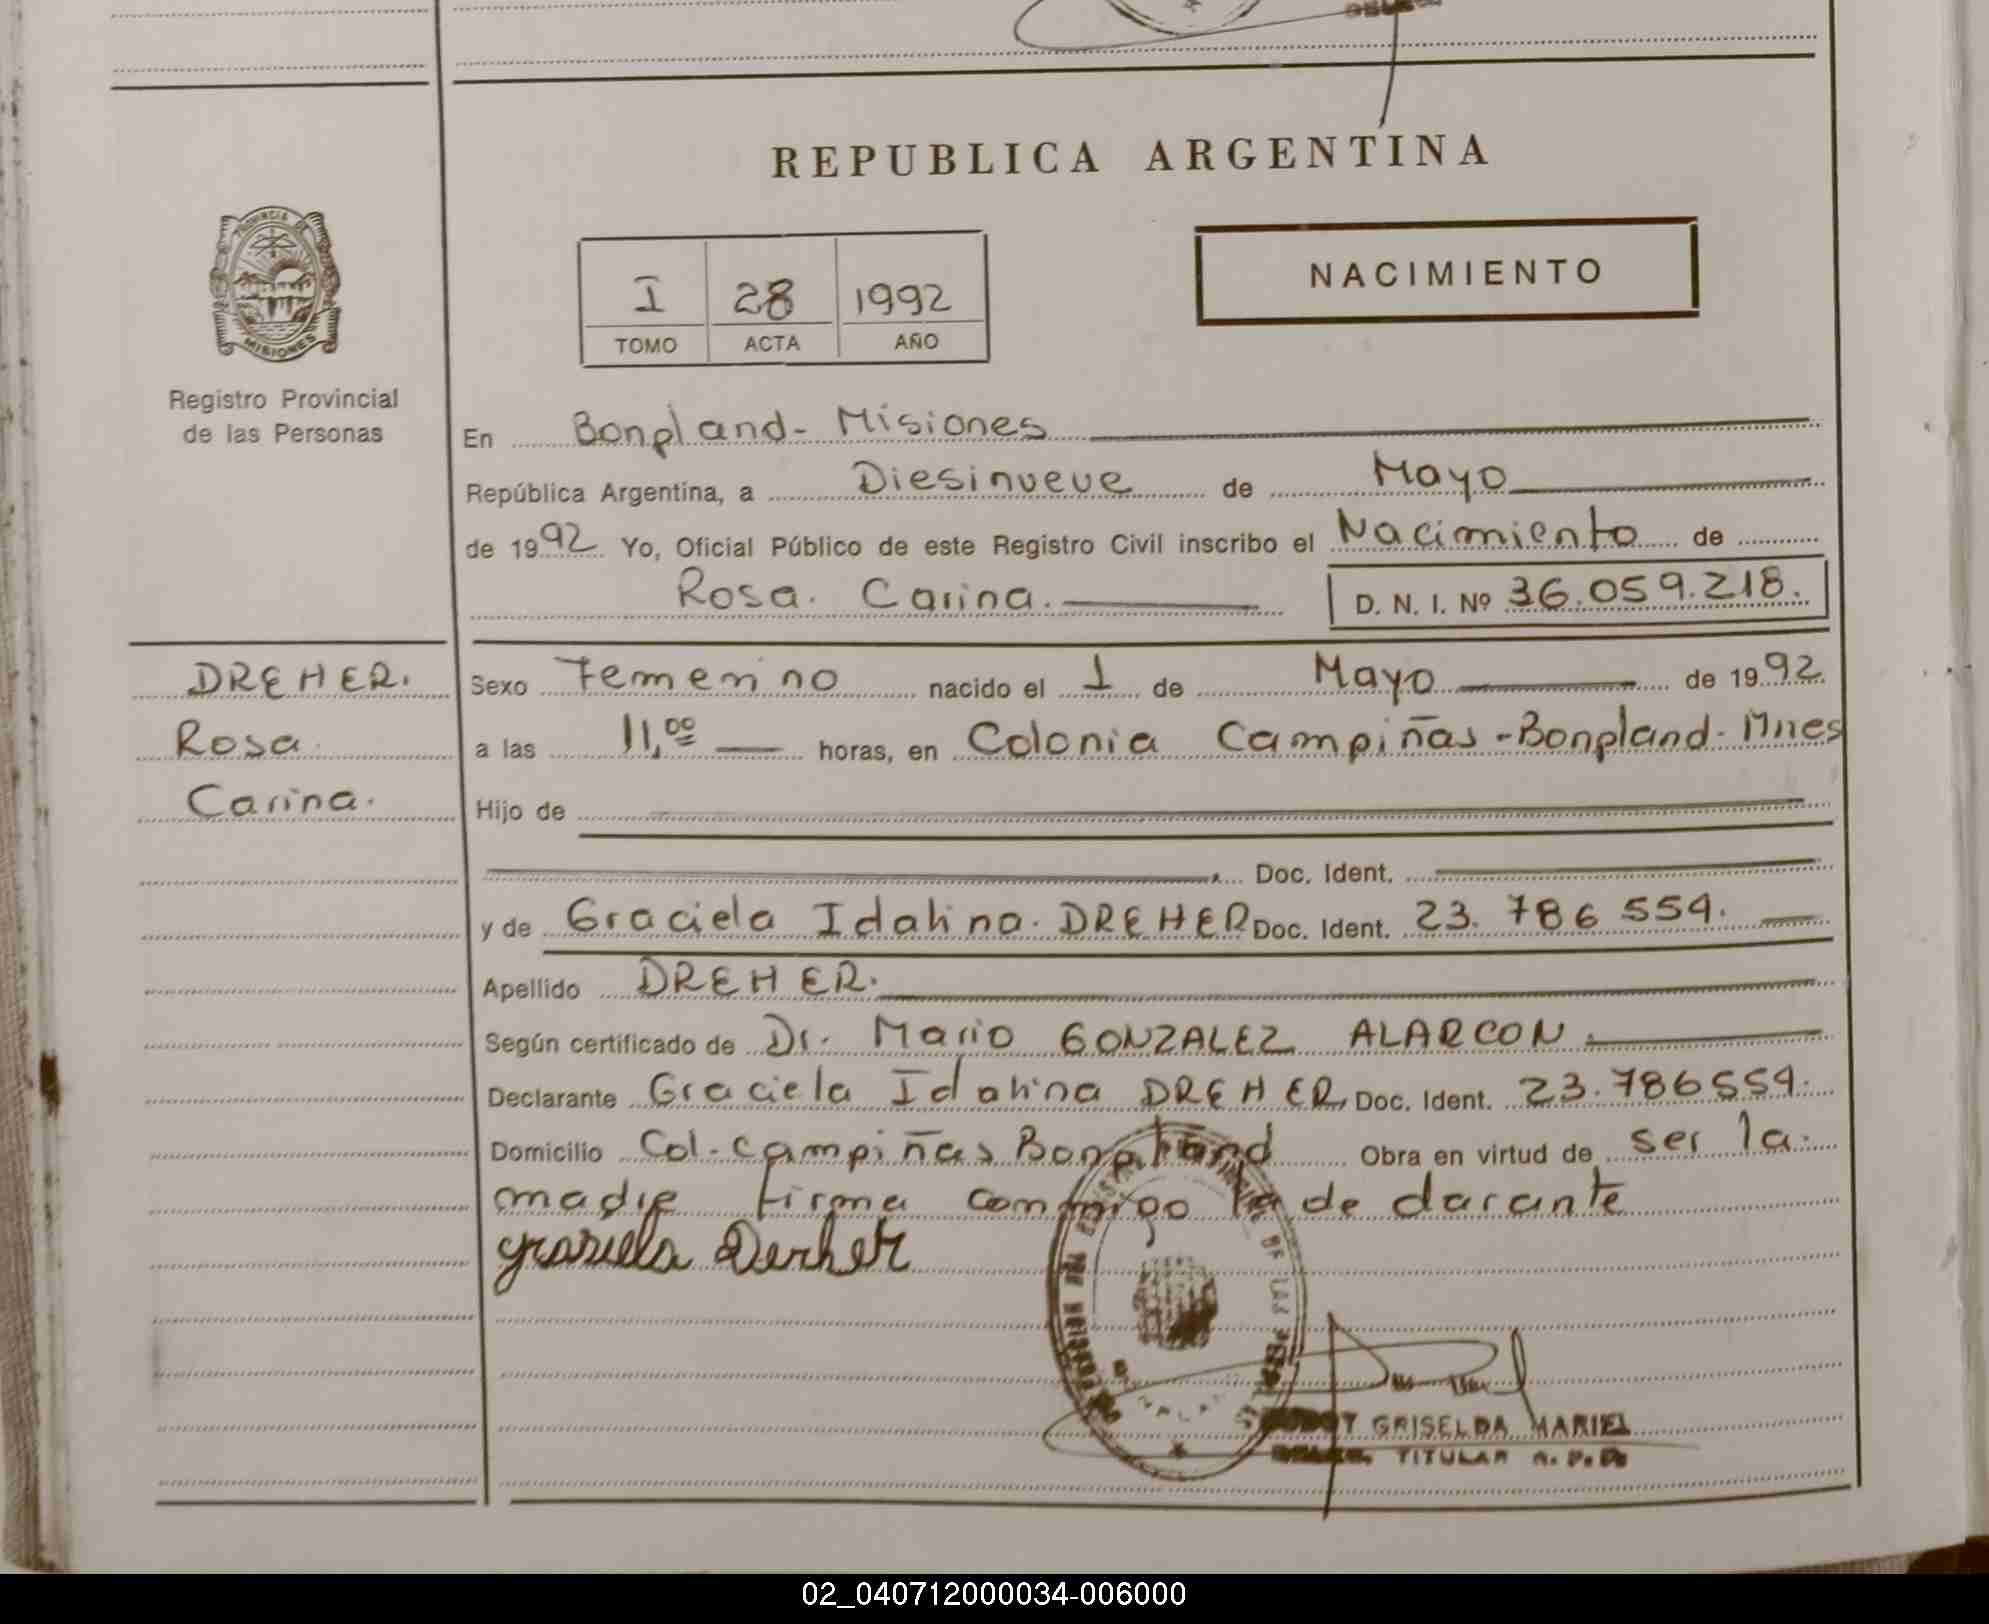 REPUBLICA ARGENTINA
PROVINCIA DE
MISIONES
Registro Provincial
de las Personas
I 28 1992
TOMO ACTA AÑO
NACIMIENTO
En Bonpland - Misiones
República Argentina, a Diesinueve de Mayo
de 1992 Yo, Oficial Público de este Registro Civil inscribo el Nacimiento de
Rosa. Carina. D. N. I. Nº 36.059.218.
DREHER.
Rosa
Carina.
Sexo Femenino nacido el 1 de Mayo de 1992
a las 11,00 horas, en Colonia Campiñas - Bonpland - Mnes
Hijo de
Doc. Ident.
y de Graciela Idalina. DREHER Doc. Ident. 23. 786 554.
Apellido DREHER.
Según certificado de Dr. Mario GONZALEZ ALARCON.
Declarante Graciela Idalina DREHER Doc. Ident. 23.786554.
Domicilio Col. Campiñas Bonpland Obra en virtud de ser la
madre firma conmigo la declarante
Grasiela Derher
GRISELDA MARIEL
TITULAR R. P. P.
02_040712000034-006000